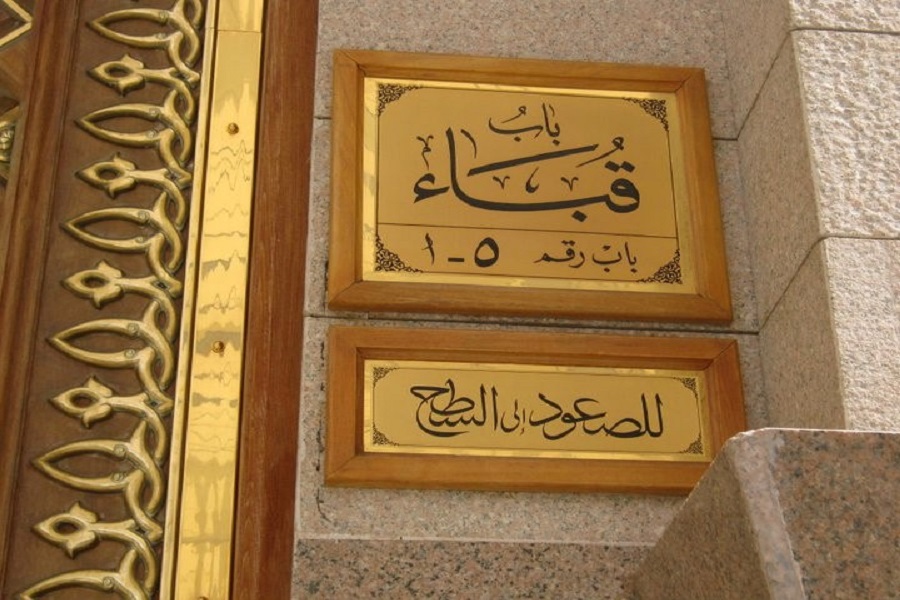 بَابُ
قُبَاء
باب رقم ٥-١
للصعود إلى السطح